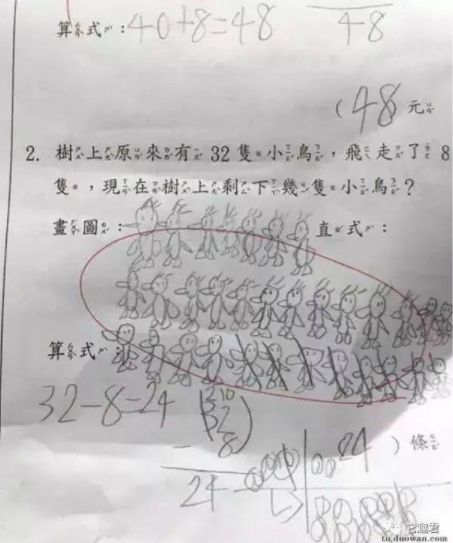 算式：40+8=48
48
(48元
2. 樹上原來有 32 隻小鳥，飛走了 8
隻，現在樹上剩下幾隻小鳥？
畫圖： 直式：
算式：
32-8=24
32
- 8
24
24)條
它溜君
tu.duowan.com